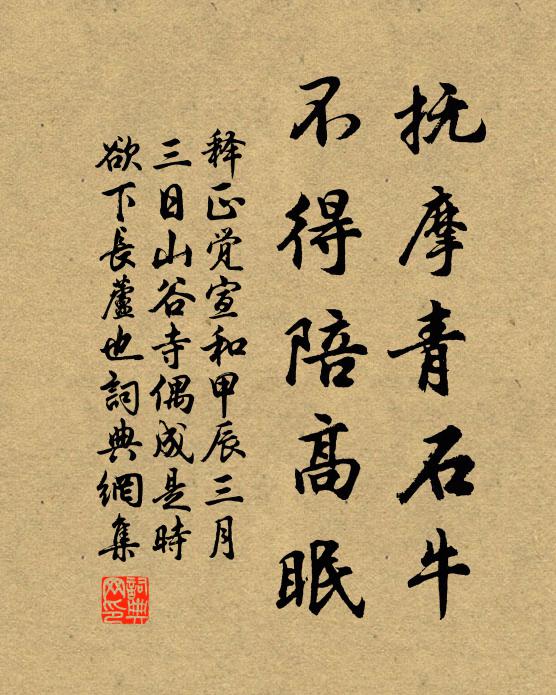 抚摩青石牛
不得陪高眠
释正觉宣和甲辰三月
三日山谷寺偶成是時
欲下長蘆也詞典網集
詞典网印